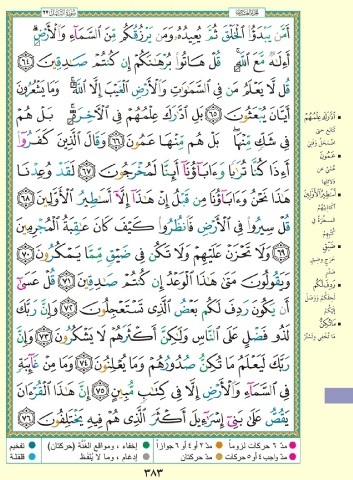 الجزء العشرون
سورة النمل ٢٧
أَمَّن يَبْدَؤُا الْخَلْقَ ثُمَّ يُعِيدُهُ وَمَن يَرْزُقُكُم مِّنَ السَّمَاءِ وَالْأَرْضِ
أَءِلَٰهٌ مَّعَ اللَّهِ قُلْ هَاتُوا بُرْهَانَكُمْ إِن كُنتُمْ صَادِقِينَ ٦٤
قُل لَّا يَعْلَمُ مَن فِي السَّمَاوَاتِ وَالْأَرْضِ الْغَيْبَ إِلَّا اللَّهُ وَمَا يَشْعُرُونَ
أَيَّانَ يُبْعَثُونَ ٦٥ بَلِ ادَّارَكَ عِلْمُهُمْ فِي الْآخِرَةِ بَلْ هُمْ
فِي شَكٍّ مِّنْهَا بَلْ هُم مِّنْهَا عَمُونَ ٦٦ وَقَالَ الَّذِينَ كَفَرُوا
أَءِذَا كُنَّا تُرَابًا وَءَابَاؤُنَا أَئِنَّا لَمُخْرَجُونَ ٦٧ لَقَدْ وُعِدْنَا
هَٰذَا نَحْنُ وَءَابَاؤُنَا مِن قَبْلُ إِنْ هَٰذَا إِلَّا أَسَاطِيرُ الْأَوَّلِينَ ٦٨
قُلْ سِيرُوا فِي الْأَرْضِ فَانظُرُوا كَيْفَ كَانَ عَاقِبَةُ الْمُجْرِمِينَ
٦٩ وَلَا تَحْزَنْ عَلَيْهِمْ وَلَا تَكُن فِي ضَيْقٍ مِّمَّا يَمْكُرُونَ ٧٠
وَيَقُولُونَ مَتَىٰ هَٰذَا الْوَعْدُ إِن كُنتُمْ صَادِقِينَ ٧١ قُلْ عَسَىٰ
أَن يَكُونَ رَدِفَ لَكُم بَعْضُ الَّذِي تَسْتَعْجِلُونَ ٧٢ وَإِنَّ رَبَّكَ
لَذُو فَضْلٍ عَلَى النَّاسِ وَلَٰكِنَّ أَكْثَرَهُمْ لَا يَشْكُرُونَ ٧٣ وَإِنَّ
رَبَّكَ لَيَعْلَمُ مَا تُكِنُّ صُدُورُهُمْ وَمَا يُعْلِنُونَ ٧٤ وَمَا مِنْ غَائِبَةٍ
فِي السَّمَاءِ وَالْأَرْضِ إِلَّا فِي كِتَابٍ مُّبِينٍ ٧٥ إِنَّ هَٰذَا الْقُرْءَانَ
يَقُصُّ عَلَىٰ بَنِي إِسْرَاءِيلَ أَكْثَرَ الَّذِي هُمْ فِيهِ يَخْتَلِفُونَ ٧٦
ادَّارَكَ عِلْمُهُمْ
عَمُونَ
أَسَاطِيرُ الْأَوَّلِينَ
ضَيْقٍ
رَدِفَ لَكُم
مَا تُكِنُّ
مدّ ٦ حركات لزوماً
مدّ ٢ أو ٤ أو ٦ جوازاً
إخفاء، ومواقع الغنّة (حركتان)
تفخيم
مدّ واجب ٤ أو ٥ حركات
مدّ حركتان
إدغام، وما لا يُلفظ
قلقلة
٣٨٣